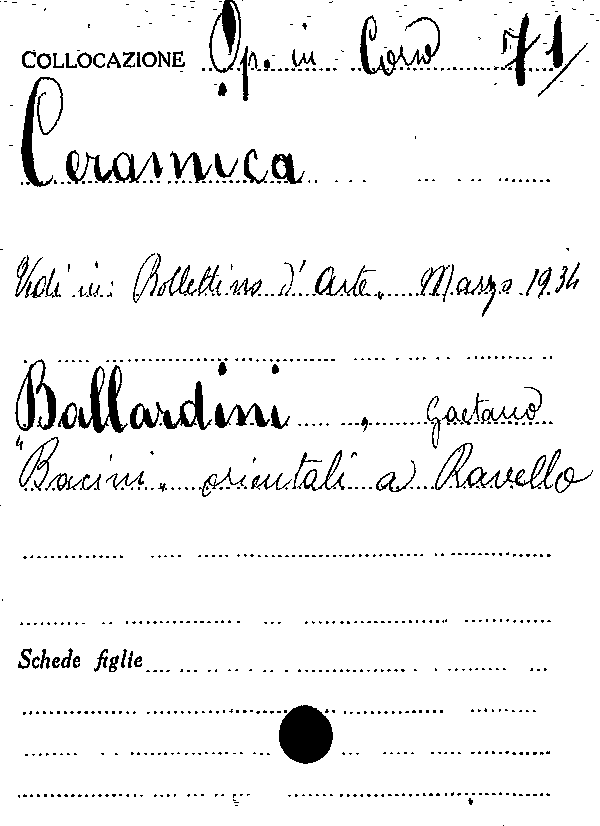 COLLOCAZIONE Op. in Corso 71/
Ceramica
Vedi in: Bollettino d'Arte. Marzo 1934
Ballardini, Gaetano
"Bacini" orientali a Ravello
Schede figlie